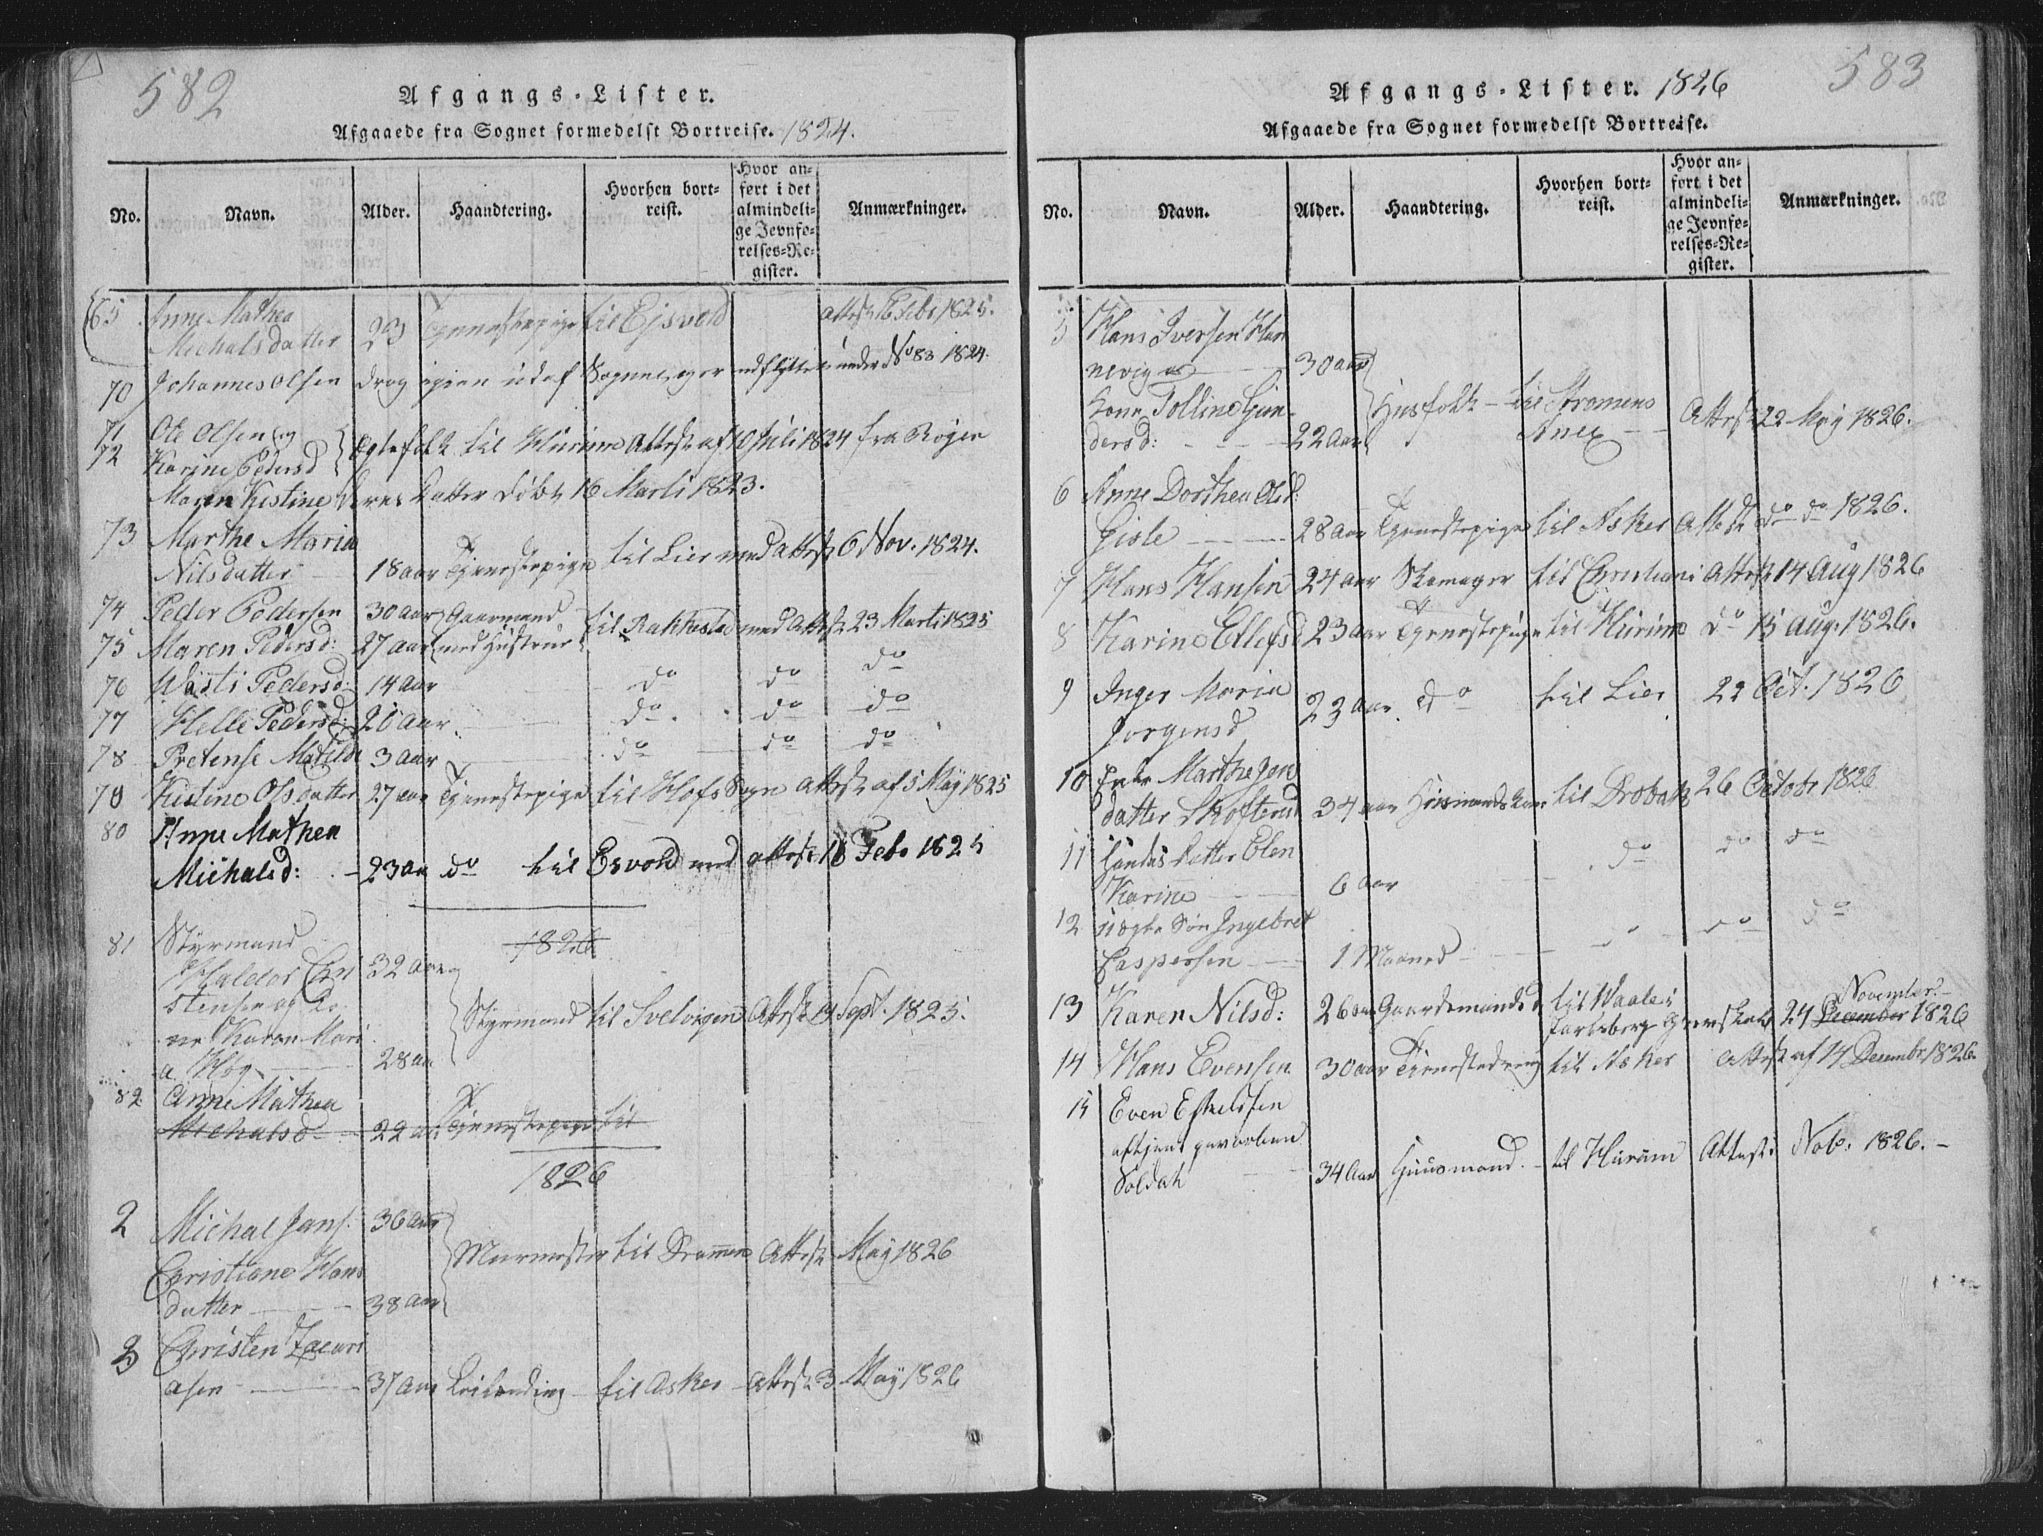 582
Afgangs-Lister.
Afgaaede fra Sognet formedelst Bortreise. 1824.
No. Navn. Alder. Haandtering. Hvorhen bortreist. Hvor anført i det almindelige Jevnførelses-Register. Anmærkninger.
65 Anne Mathea
Michalsdatter 23 Tjenestepige til Ejsvold attest 16 Feb. 1825.
70 Johannes Olsen drog igien ud af Sognet, er under No 83 1824.
71 Ole Olsen og
72 Karine Pedersd Egtefolk til Hurum Attest af 10 Juli 1824 fra Røgen
Maren Kistine deres Datter døbt 16 Marti 1823.
73 Marthe Maria
Nilsdatter 18 aar Tjenestepige til Lier med attest 6 Nov. 1824.
74 Peder Pedersen 30 aar Gaarmand
75 Maren Pedersd: 27 aar med Hustrue til Rakkestad med Attest 23 Marti 1825
76 Pedersd: 14 aar do do do
77 Helle Pedersd: 20 aar do do do
78 Pretense Matilde 3 aar do do do
79 Kistine Olsdatter 27 aar Tjenestepige til Hofs Sogn Attest af 5 May 1825
80 Anne Mathea
Michalsd: 23 aar do til Esvold med attest 16 Feb. 1825
1826
81 Styrmand
Haldor Cri
stensen og Ko
ne Karen Mari
a Høy 32 aar 28 aar Styrmand til Svelvigen Attest Sept. 1825.
82 Anne Mathea
Michalsd 22 aar Tjenestepige til
1826
2 Michal Jans. 36 aar
Christiane Hans
datter 38 aar Murmester til Drammen Attest May 1826
3 Christen Zacari
asen 37 aar Leilending til Asker Attest 3 May 1826
583
Afgangs-Lister. 1826
Afgaaede fra Sognet formedelst Bortreise.
No. Navn. Alder. Haandtering. Hvorhen bortreist. Hvor anført i det almindelige Jevnførelses-Register. Anmærkninger.
5 Hans Iversen Han
nevig 30 aar
Kone Tolline Gun
dersd: 22 aar Husfolk til Strømens Anex Attest 22 May 1826.
6 Anne Dorthea Olsd:
Gisle 28 aar Tjenestepige til Asker Attest do do 1826.
7 Hans Hansen 24 aar Skomager til Christiani Attest 14 Aug 1826
8 Karine Ellefsd 23 aar Tjenestepige til Hurum do 15 Aug. 1826.
9 Inger Maria
Jorgensd 23 aar do til Lier 22 Oct. 1826
10 Enke Marthe Jon
datter Skofterud 34 aar Huusmands til Drøbak 26 Octobr 1826
11 Hendes Datter Elen
Karine 6 aar do do do
12 uægte Søn Ingebret
Caspersen 1 Maaned do do do
13 Karen Nilsd: 26 aar Gaardmands til Waale i
Jarlsberg Grevskab 24 December November 1826
14 Hans Evensen 30 aar Tjenestedreng til Asker Attest af 14 Decembr. 1826.
15 Even Eskelsen
aftjent gevorben
Soldat 34 Aar Huusmand til Hurum Attest i Nob. 1826.